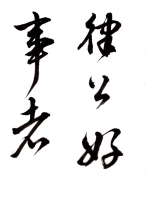 律公好
事者